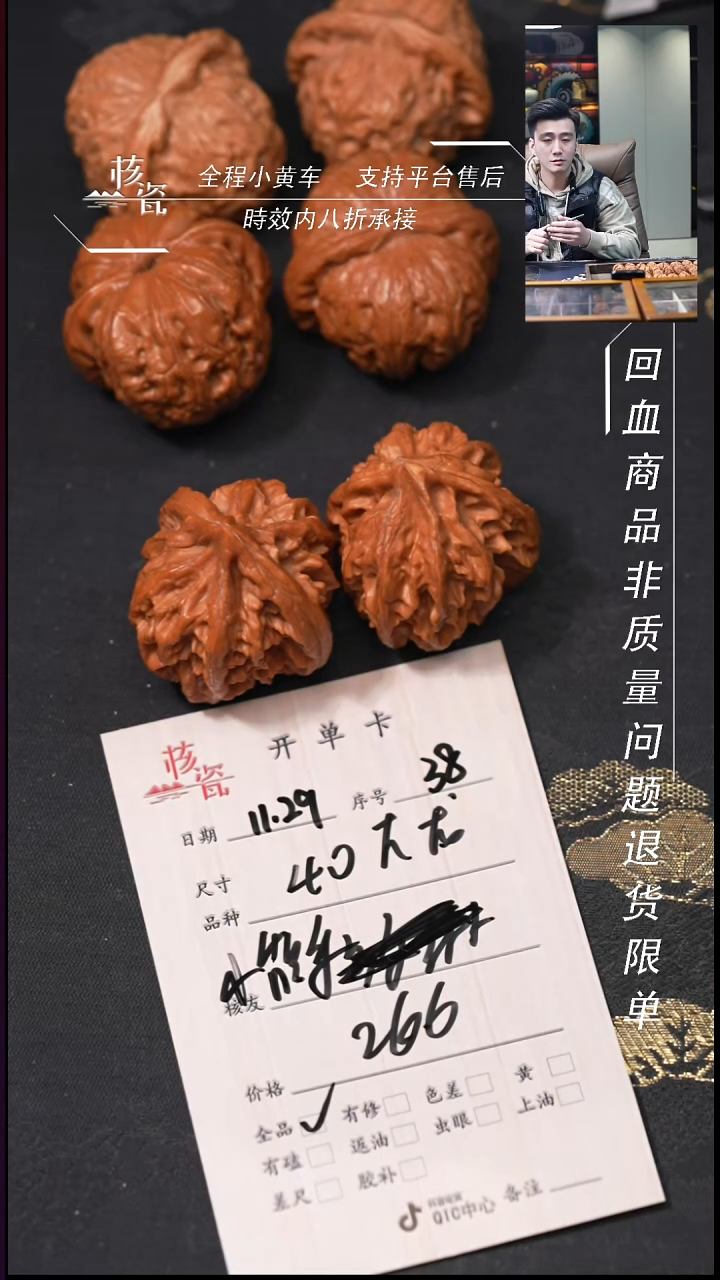 核瓷
全程小黄车 支持平台售后
時效内八折承接
回血商品非质量问题退货限单
核瓷
开单卡
日期 11.29 序号 38
尺寸 40大龙
品种
核友
266
价格
全品 ✓ 有修 色差 黄
有磕 返油 虫眼 上油
差尺 胶补
QIC中心 备注